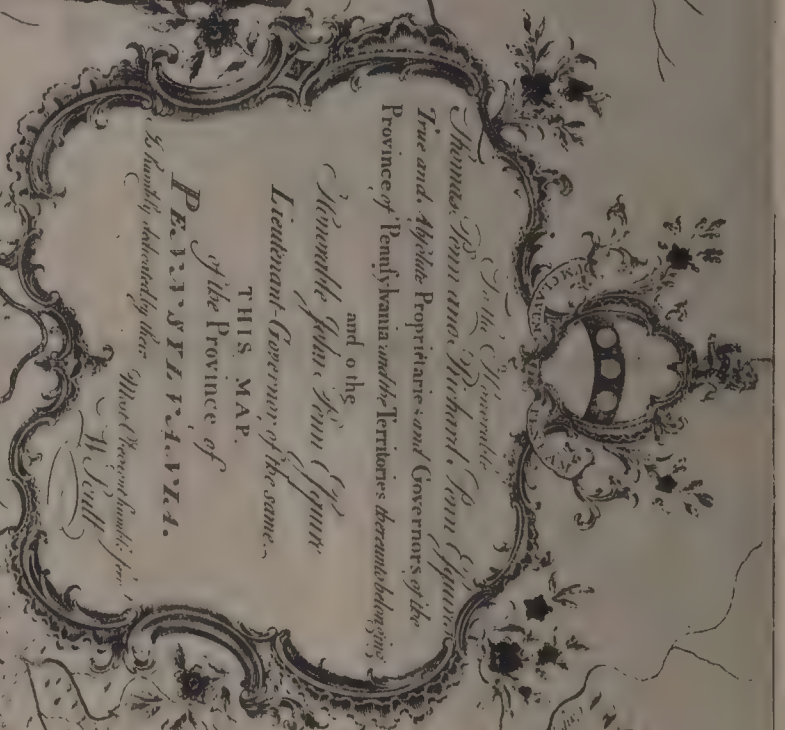 To the Honorable
Thomas Penn and Richard Penn Esquires
True and Absolute Proprietaries and Governors of the
Province of Pennſylvania and the Territories thereunto belonging
and to the
Honorable John Penn Esquire
Lieutenant-Governor of the same
THIS MAP.
of the Province of
PENNSYLVANIA.
Is humbly dedicated by their Most Obedient humble
W. Scull